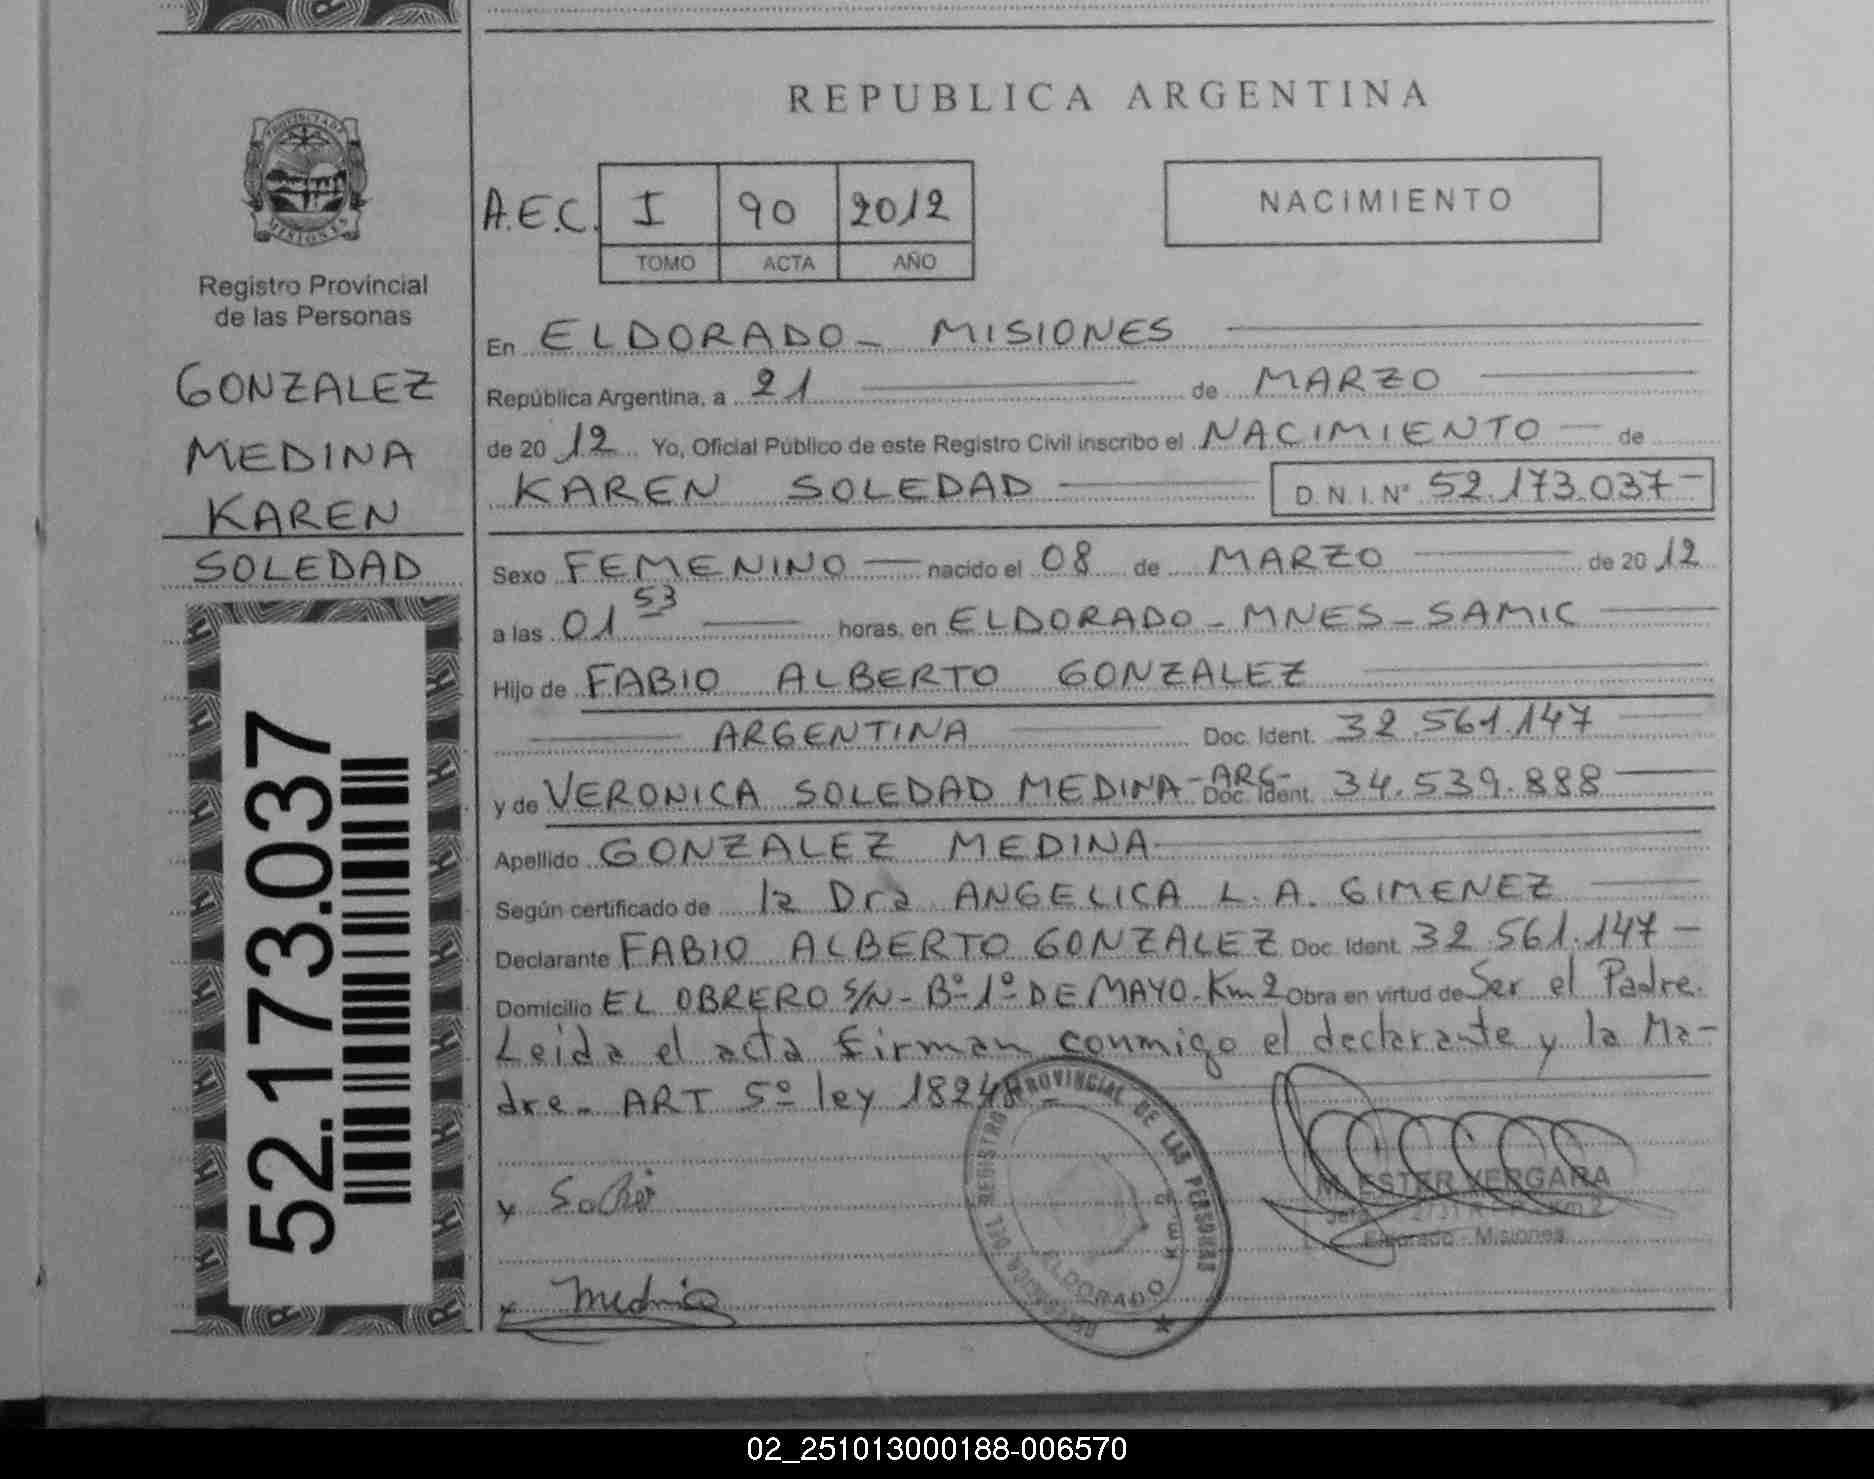 REPUBLICA ARGENTINA
PROVINCIA DE
MISIONES
Registro Provincial
de las Personas
GONZALEZ
MEDINA
KAREN
SOLEDAD
52.173.037
A.E.C. I 90 2012
TOMO ACTA AÑO
NACIMIENTO
En ELDORADO - MISIONES
República Argentina, a 21 de MARZO
de 2012 Yo, Oficial Público de este Registro Civil inscribo el NACIMIENTO de
KAREN SOLEDAD D.N.I. Nº 52.173.037-
Sexo FEMENINO nacido el 08 de MARZO de 2012
a las 01 53 horas, en ELDORADO - MNES - SAMIC
Hijo de FABIO ALBERTO GONZALEZ
ARGENTINA Doc. Ident. 32.561.147
y de VERONICA SOLEDAD MEDINA - ARG - Doc. Ident. 34.539.888
Apellido GONZALEZ MEDINA
Según certificado de la Dra ANGELICA L. A. GIMENEZ
Declarante FABIO ALBERTO GONZALEZ Doc. Ident. 32.561.147-
Domicilio EL OBRERO S/N - Bº 1º DE MAYO - Km 2 Obra en virtud de Ser el Padre.
Leida el acta firman conmigo el declarante y la Ma-
dre - ART 5º ley 18248 -
REGISTRO PROVINCIAL DE LAS PERSONAS
DELEGACION DEL
ELDORADO
Km 2
M. ESTER VERGARA
Eldorado - Misiones
x
x Medina
02_251013000188-006570